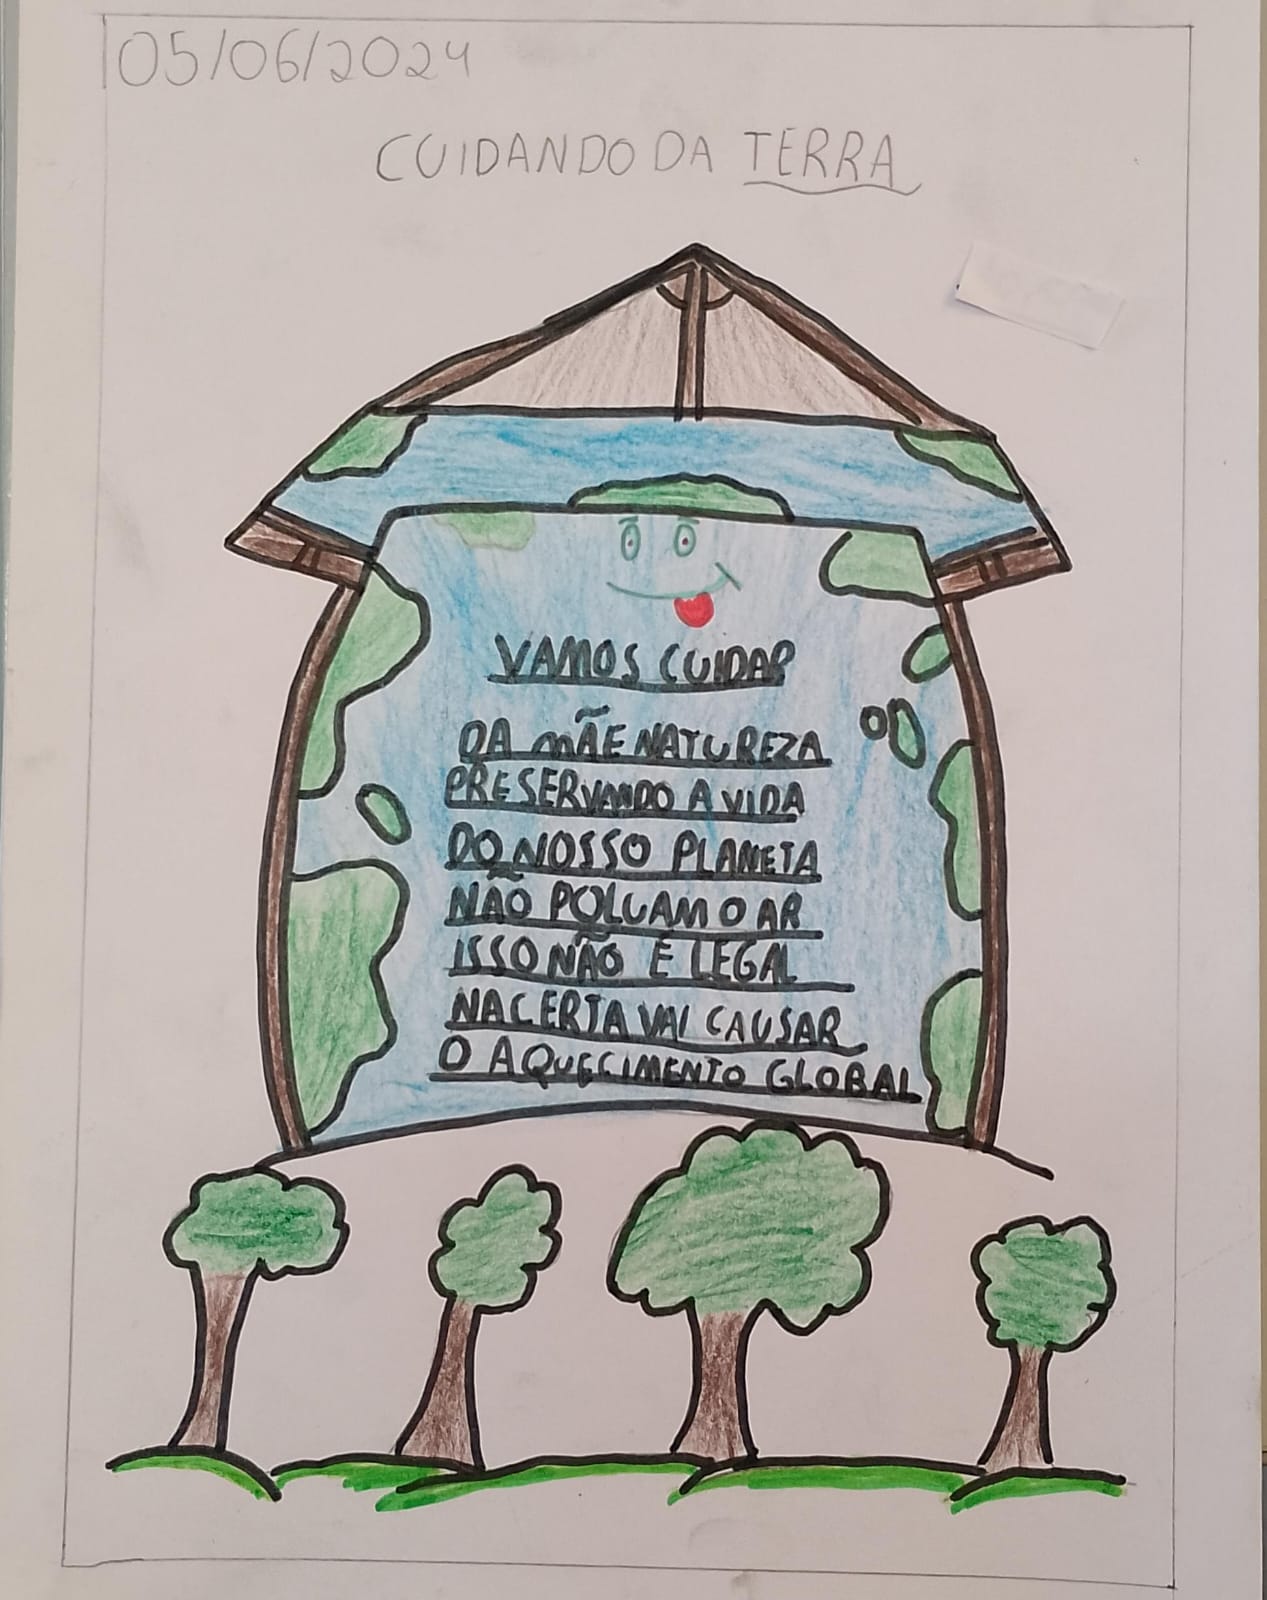 05/06/2024
CUIDANDO DA TERRA
VAMOS CUIDAR
DA MÃE NATUREZA
PRESERVANDO A VIDA
DO NOSSO PLANETA
NÃO POLUAM O AR
ISSO NÃO É LEGAL
NA CERTA VAI CAUSAR
O AQUECIMENTO GLOBAL